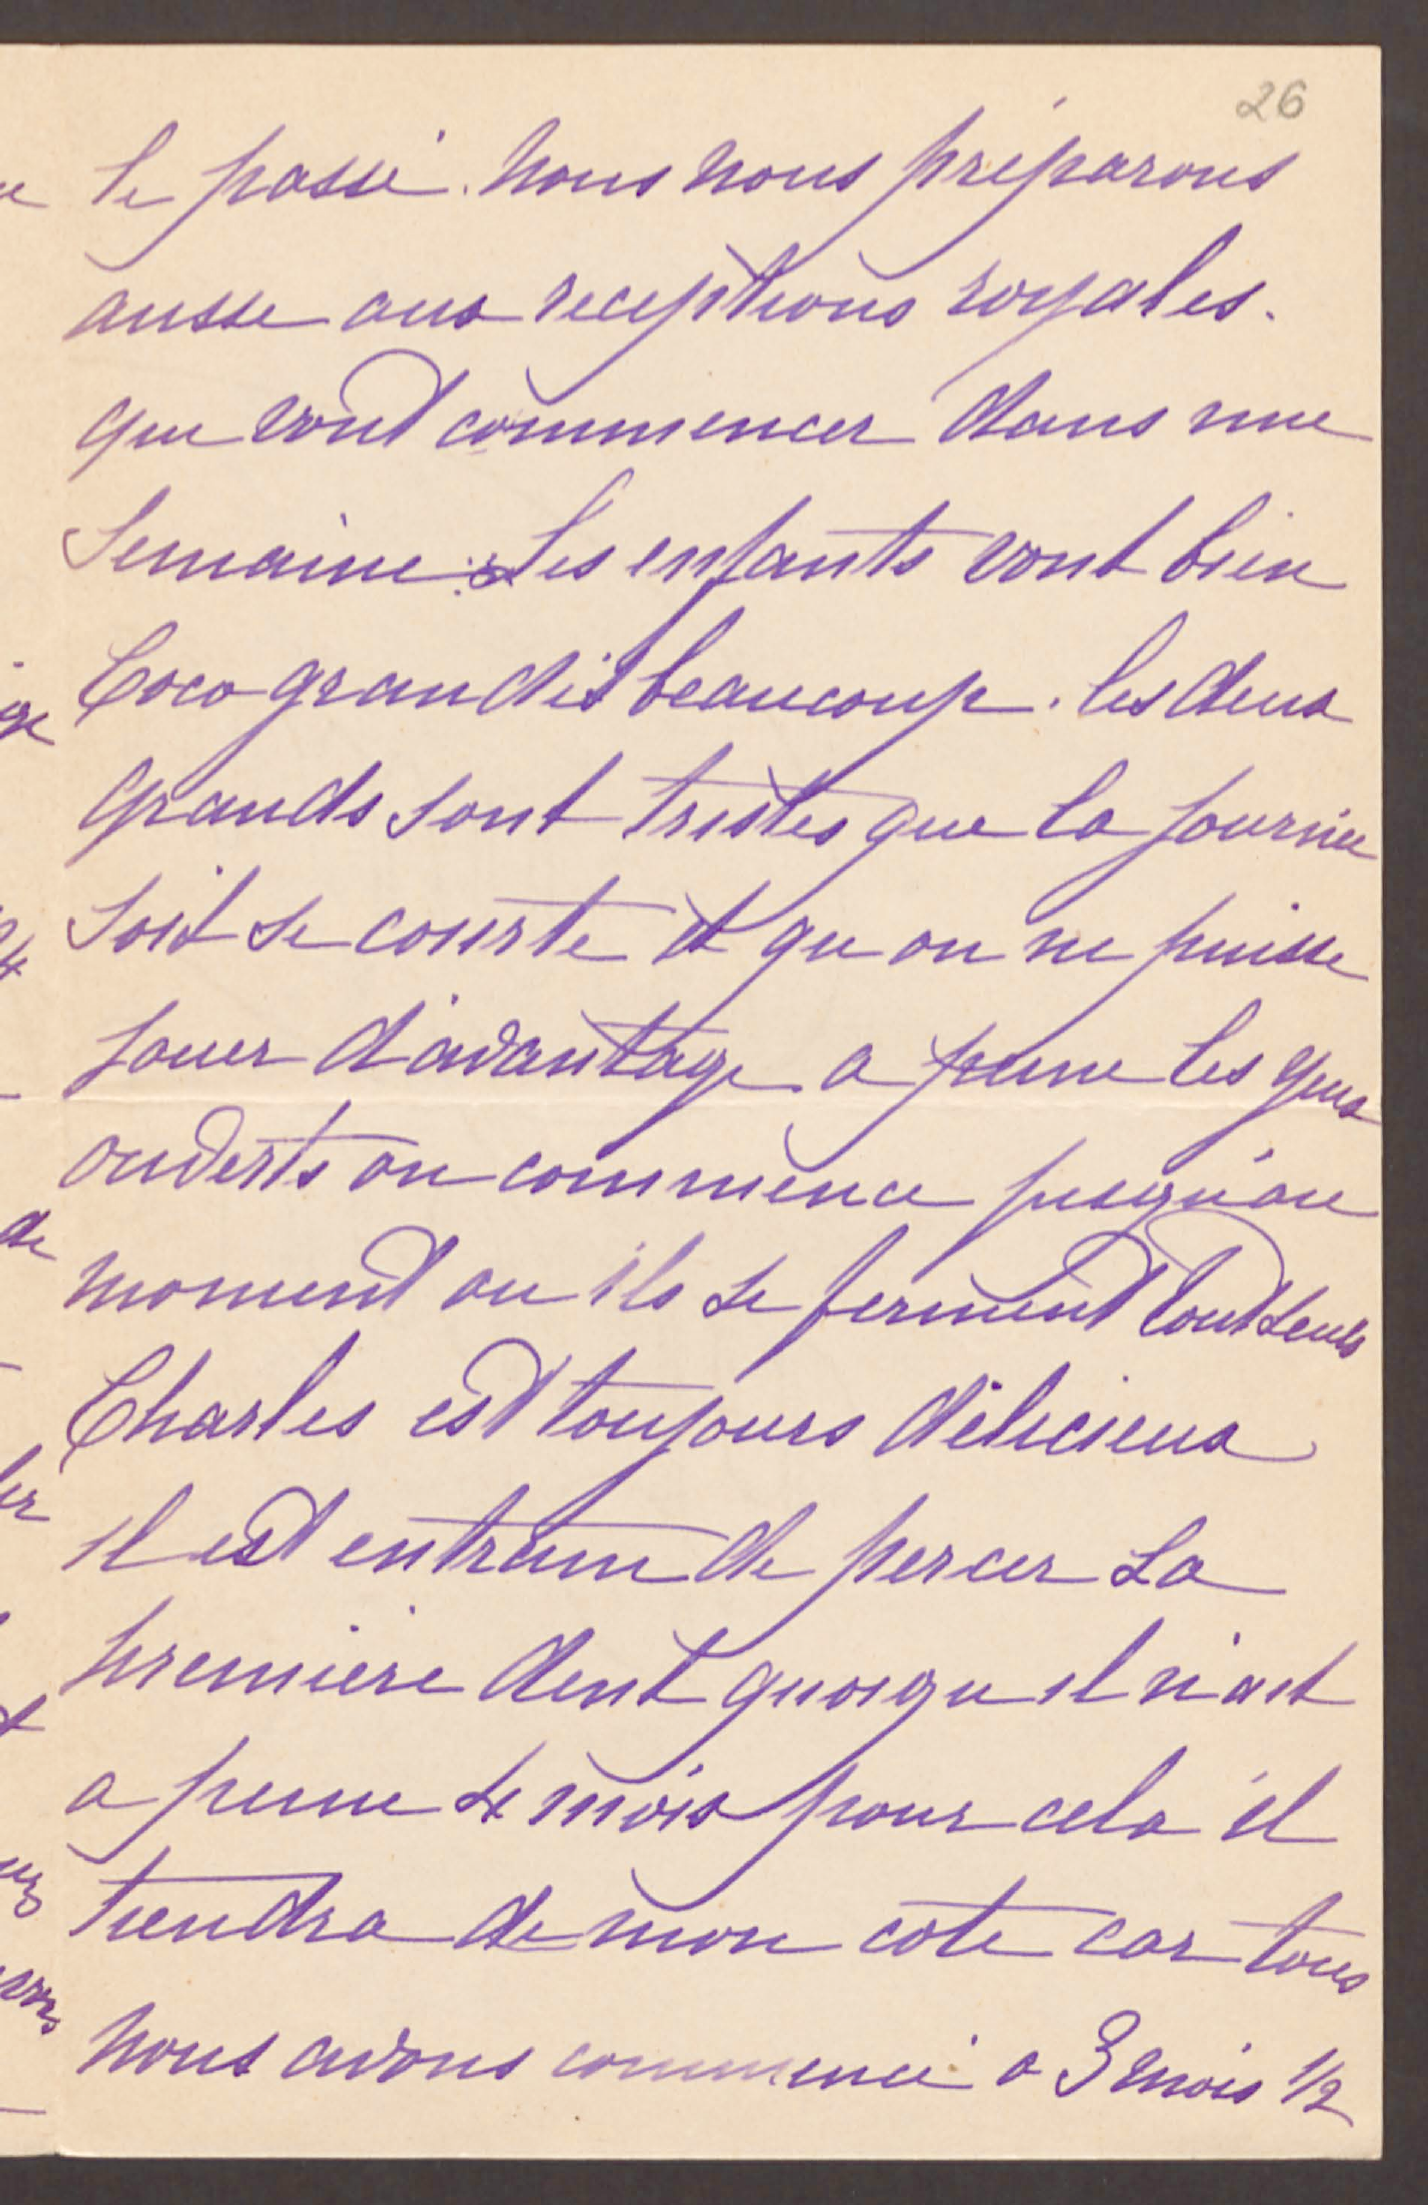 26
le passé. Nous nous préparons
aussi aux receptions royales.
qui vont commencer dans une
Semaine. Les enfants vont bien
Coco grandit beaucoup. les deux
grands sont tristes que la journée
soit si courte et qu on ne puisse
jouer d'avantage a peine les yeux
ouverts on commence jusqu'au
moment ou ils se ferment tout seuls
Charles est toujours délicieux
il est entrain de percer sa
premiere dent quoiqu il n'ait
a peine 4 mois pour cela il
tiendra de mon cote car tous
nous avons commencé a 3 mois 1/2